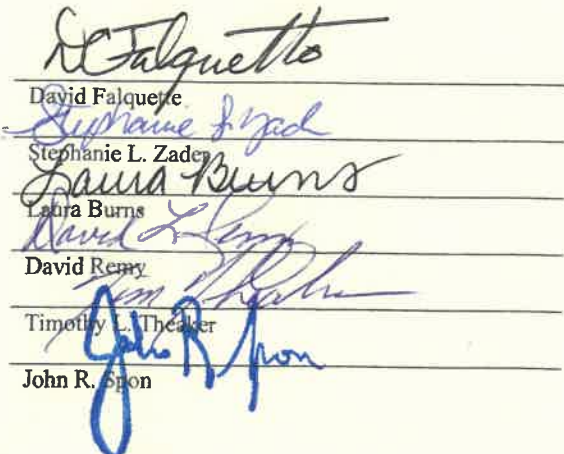 DFalquetto
David Falquette
Stephanie L. Zad
Stephanie L. Zader
Laura Burns
Laura Burns
David L Remy
David Remy
Tim Theaker
Timothy L. Theaker
John R Spon
John R. Spon